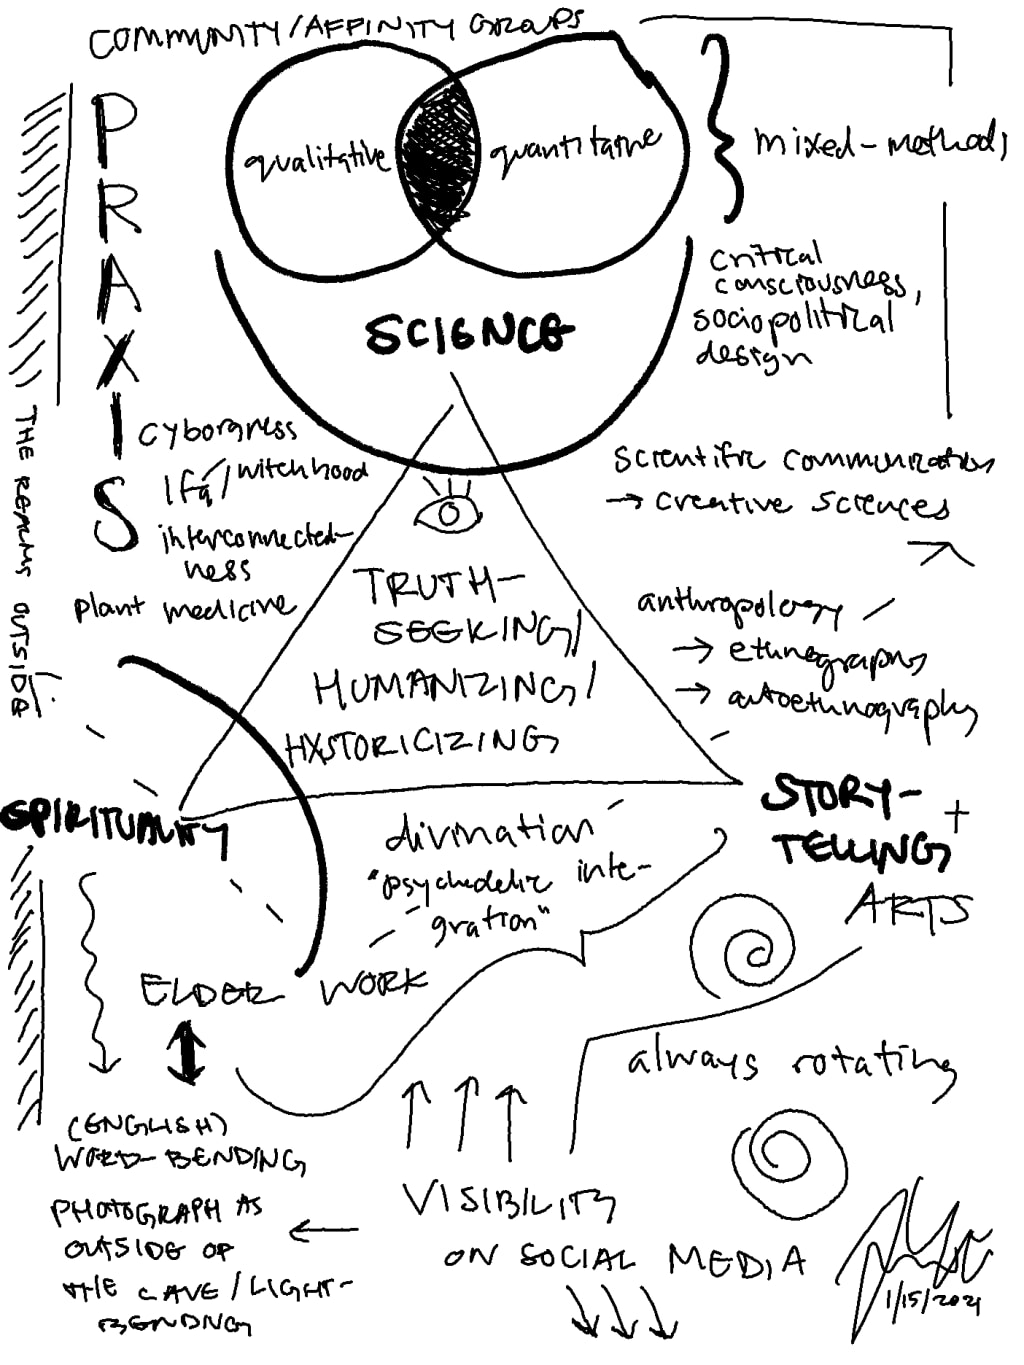 COMMUNITY/AFFINITY GROUPS
PRAXIS
qualitative
quantitative
mixed-methods
SCIENCE
critical
consciousness,
sociopolitical
design
THE REALMS OUTSIDE
cyborgness
Ifá/witchhood
interconnected-
ness
plant medicine
scientific communication
→ creative sciences
anthropology
→ ethnography
→ autoethnography
TRUTH-
SEEKING/
HUMANIZING/
HXSTORICIZING
SPIRITUALITY
STORY-
TELLING +
ARTS
divination
"psychedelic inte-
gration"
ELDER WORK
always rotating
(ENGLISH)
WORD-BENDING
PHOTOGRAPH AS
OUTSIDE OF
THE CAVE/LIGHT-
BENDING
VISIBILITY
ON SOCIAL MEDIA
1/15/2021